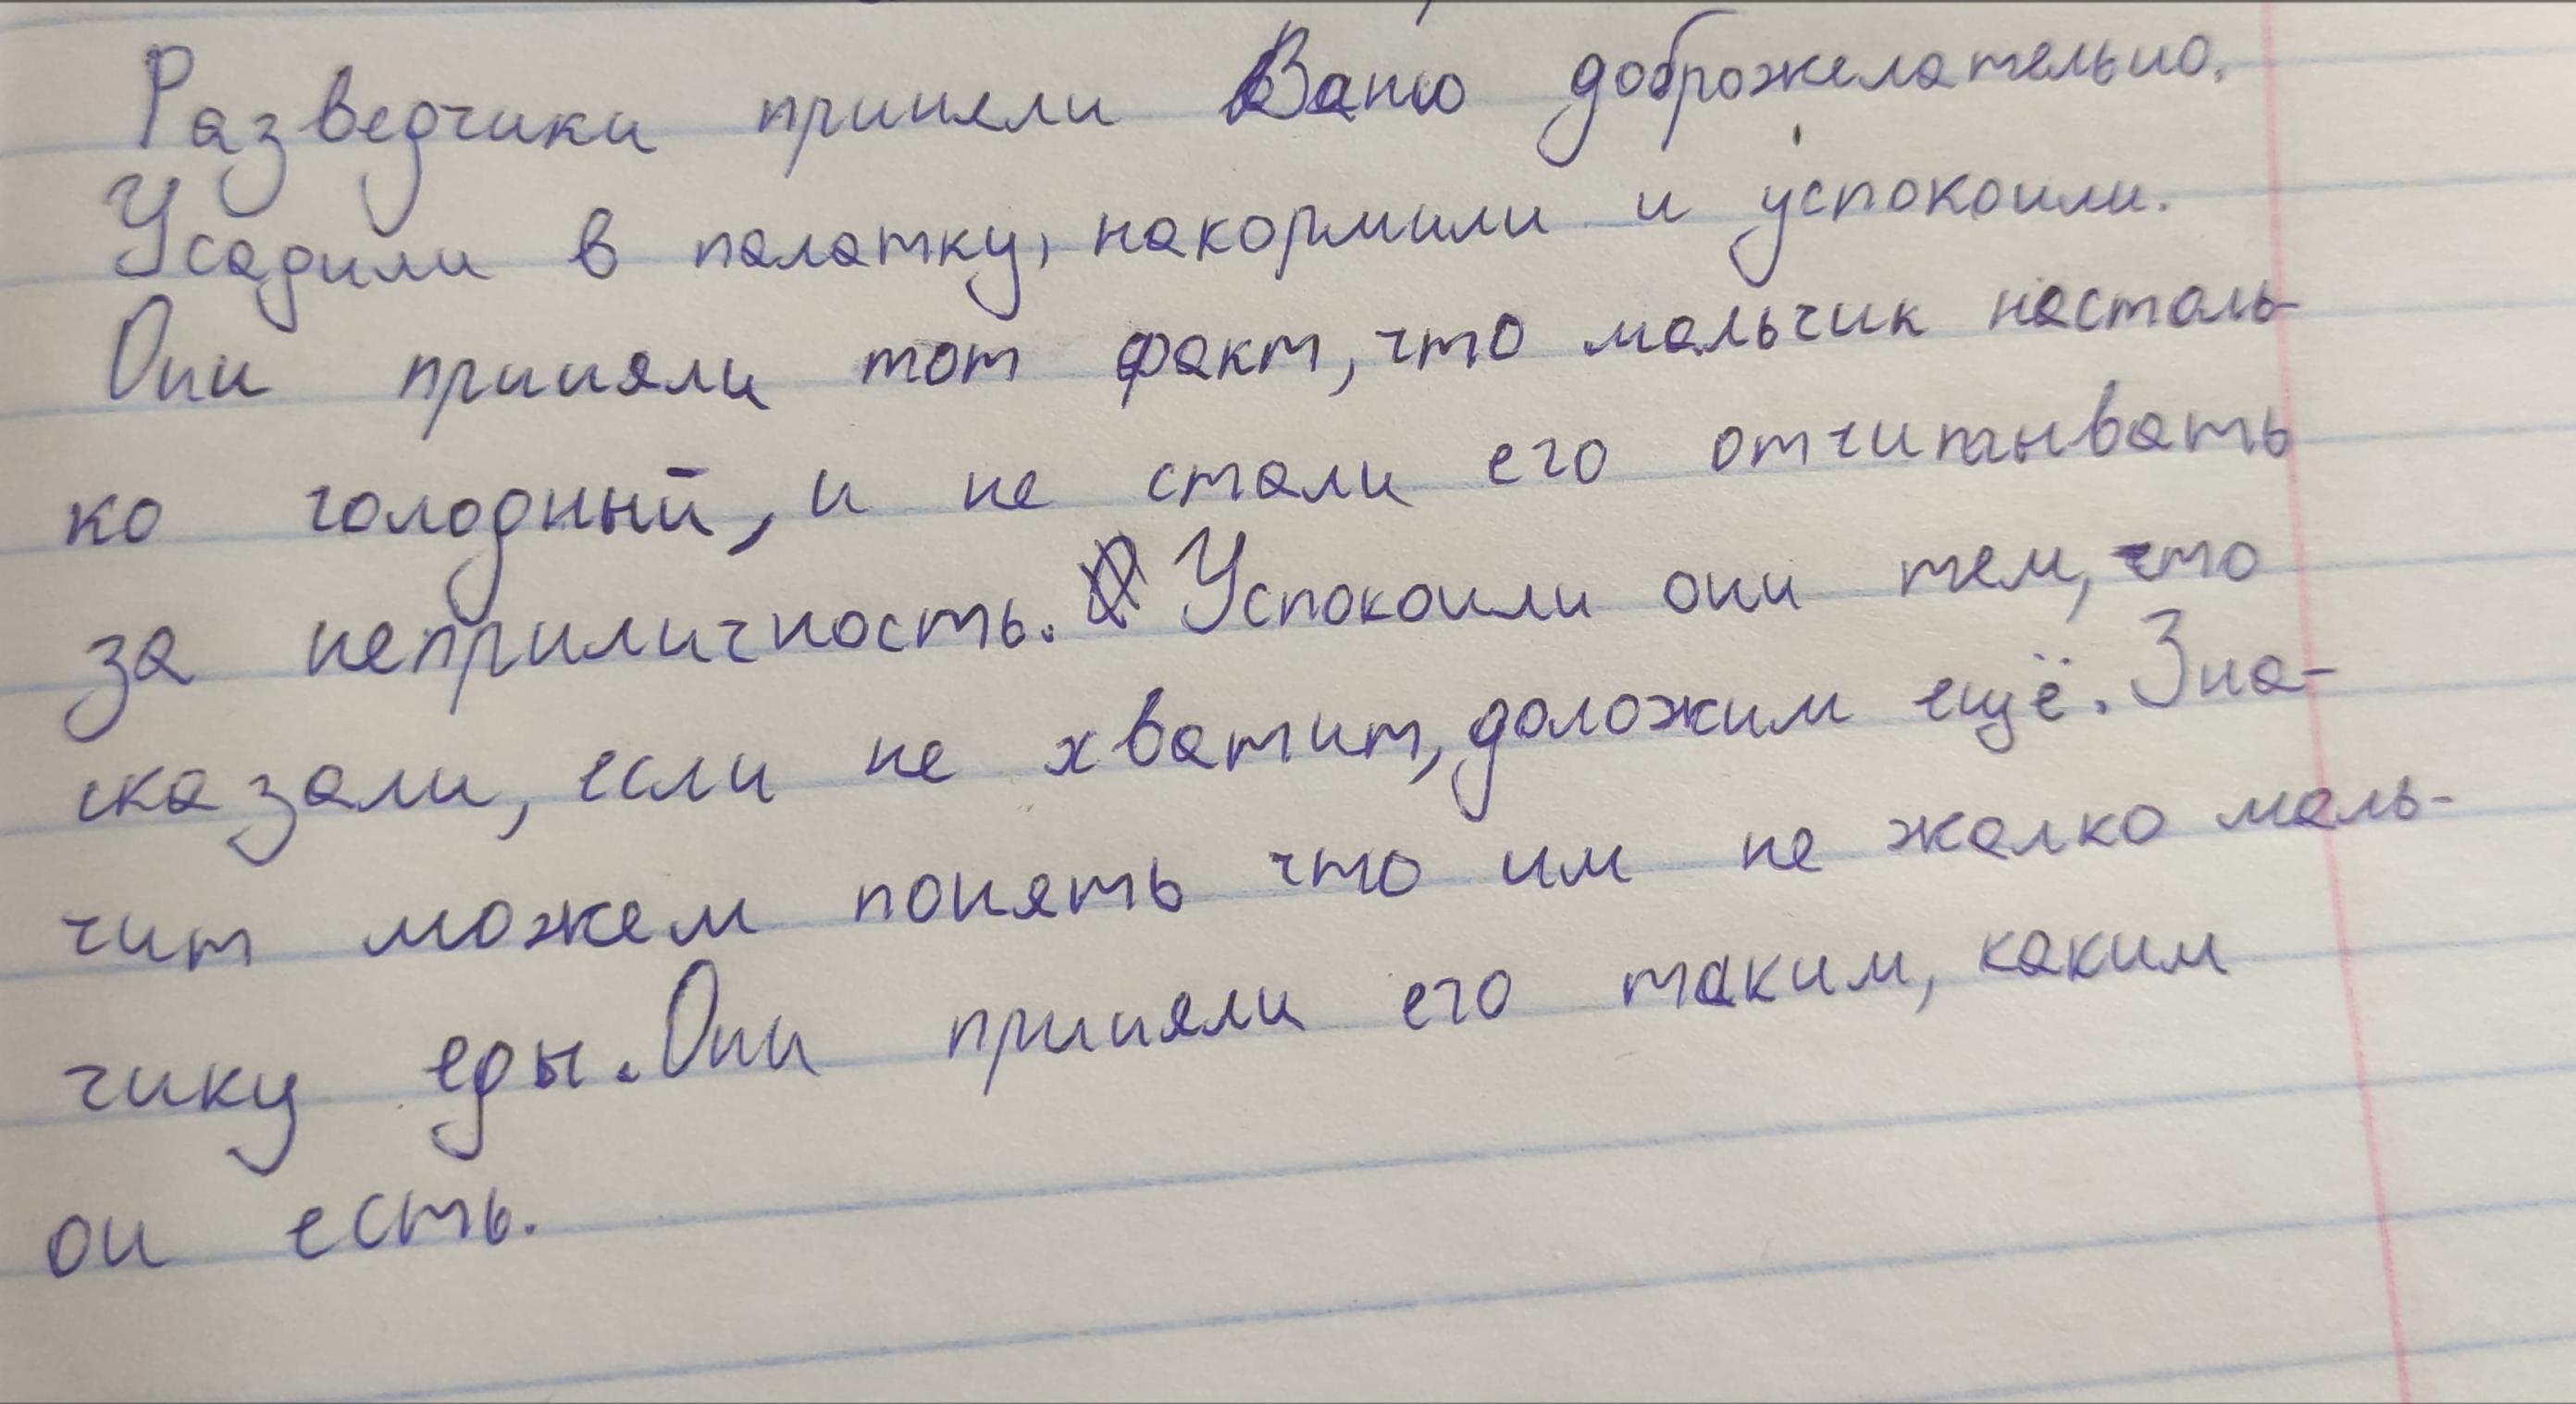 Разведчики приняли Ваню доброжелательно.
Усадили в палатку, накормили и успокоили.
Они приняли тот факт, что мальчик настоль-
ко голодный, и не стали его отчитывать
за неприличность. Успокоили они тем, что
сказали, если не хватит, доложим ещё. Зна-
чит можем понять что им не жалко маль-
чику еды. Они приняли его таким, каким
он есть.